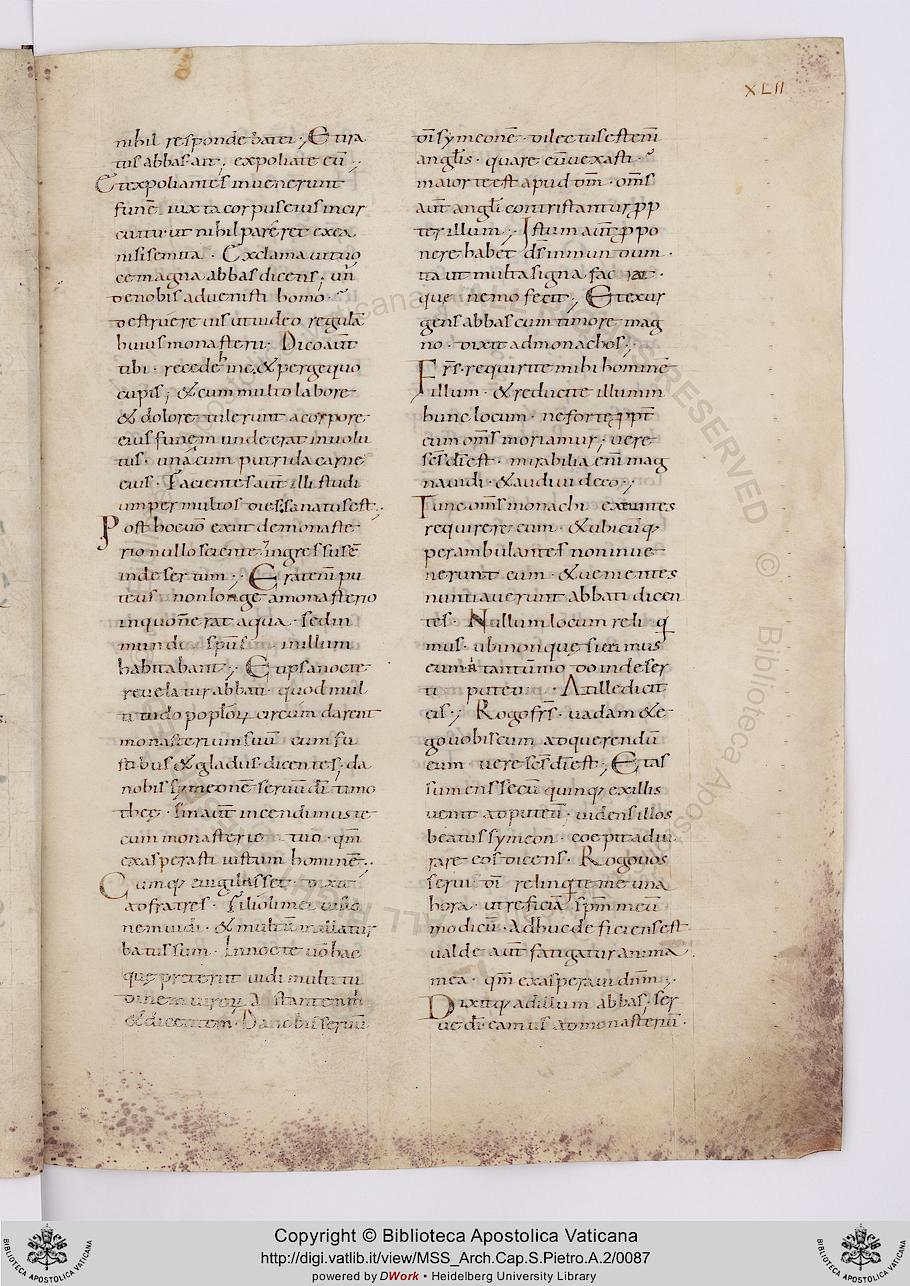 XLII
nihil respondebat ei ; Et ira
tus abbas ait , expoliate eū ;
Et expoliantes invenerunt
funē iuxta corpus eius incir
cuitu ut nihil parēret ex ea
nisi semita . Exclamavit uo
ce magna abbas dicens ; un̄
de nobis advenisti homo .
destruere uis ut video regulā
huius monasterii . Dico aūt
tibi . recede hinc & perge quo
cupis ; & cum multo labore
& dolore tulerunt a corpore
eius funem unde erat involu
tus . unā cum putrida carne
eius . Facientes aūt illi studi
um per multos dies sanatus est ;
Post hoc uō exiit de monaste
rio nullo sciente ingressus ē
in desertum ; Erat enī pu
teus non longe a monasterio
in quo nē rat aqua . sed in
mundi sp̄us in illum
habitabant ; Et ipsa nocte
revelatur abbati . quod mul
titudo poplōꝝ circumdarent
monasterium suū cum fu
stibus & gladiis dicentes , da
nobis symeonē seruū dī timo
thee . sin aūt incendimus te
cum monasterio tuō . qm̄
exasperasti iustum hominē ;
Cumq; evigilasset . dixit
ad fratres . filioli mei visio
nem vidi . & multū in illa tur
batus sum . In nocte uō hac
que preteriit vidi multitu
dinem viroꝝ astantem m̄
& dicentem . Da nobis seruū
dī symeonē . dilectus est enī
anglīs . quare eū vexasti .
maior te est apud dm̄ . om̄s
aūt anglī contristantur ꝓp
ter illum ; Istum aūt ꝓpo
nere habet dn̄s in mundum .
ita ut multa signa faciat .
que nemo fecit ; Et exur
gens abbas cum timore mag
no . dixit ad monachos ;
Fr̄s . requirite mihi hominē
illum . & reducite illum in
hunc locum . ne forte ꝓpt̄
eum om̄s moriamur ; vere
sēs dī est . mirabilia enī mag
na vidi . & audivi de eo ;
Tunc om̄s monachi exeuntes
requirere eum . & ubicūq;
perambulantes non inve
nerunt eum . & venientes
nuntiaverunt abbati dicen
tes . Nullum locum reliq
mus . ubi non quesierimus
eum . n̄ tantūmodo in deser
ti puteum . At ille dicit
eis ; Rogo fr̄s . vadam & e
go vobiscum ad querendū
eum vere sēs dī est ; Et as
sumens secū quinq; ex illis
venit ad puteū . videns illos
beatus symeon . coepit adiu
rare eos dicens . Rogo vos
servi dī relinq̄te me una
hora . ut reficiā sp̄m meū
modicū . Adhuc deficiens est
valde aūt fatigatur anima
mea . qm̄ exasperavi dnm̄ ;
Dixitq; ad illum abbas , ser
ve dī eamus ad monasteriū .
Copyright © Biblioteca Apostolica Vaticana
http://digi.vatlib.it/view/MSS_Arch.Cap.S.Pietro.A.2/0087
powered by DWork • Heidelberg University Library